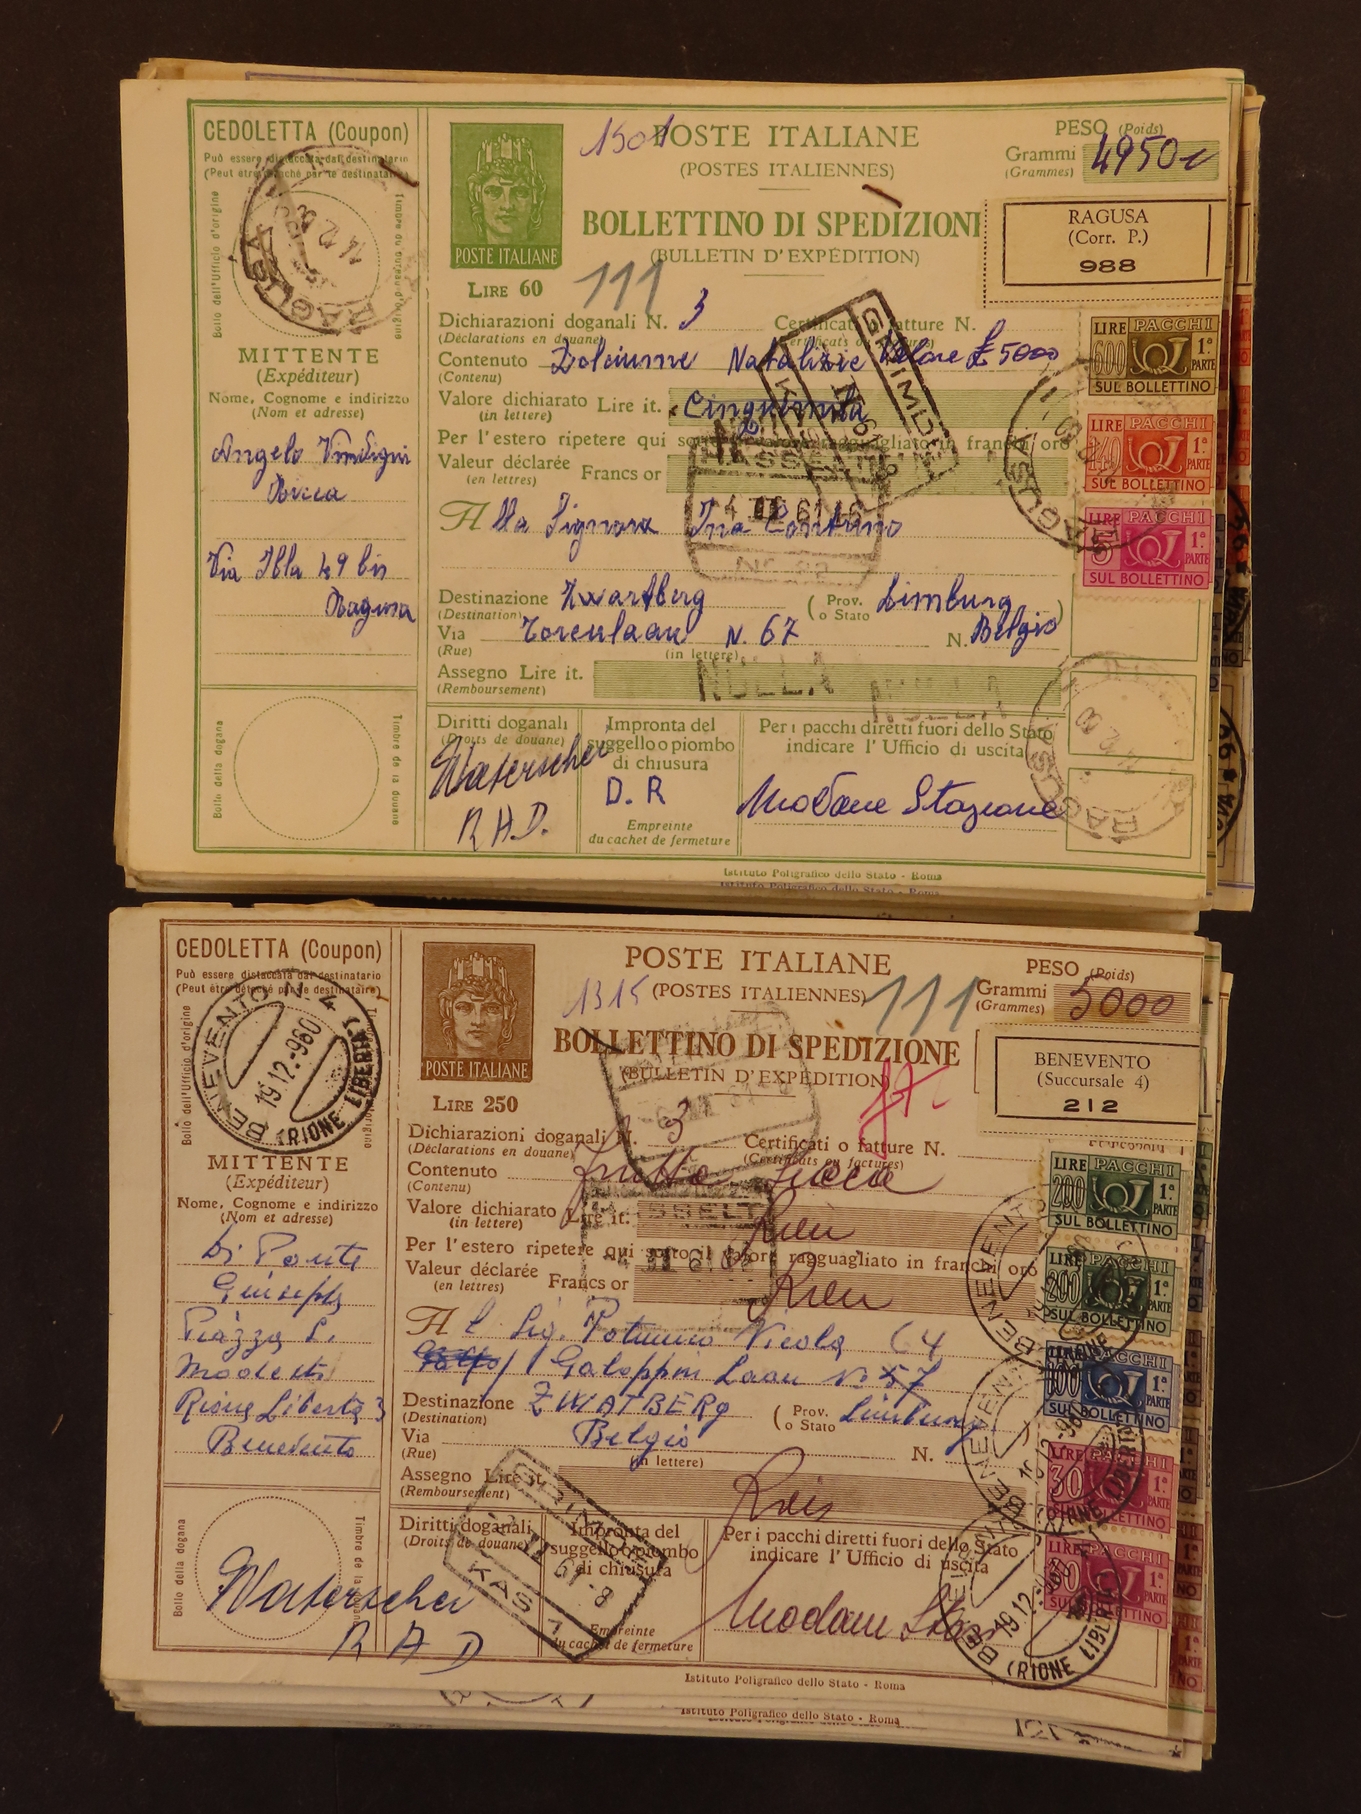 CEDOLETTA (Coupon)
Può essere distaccata dal destinatario
(Peut être détaché par le destinataire)
Bollo dell'Ufficio d'origine
Timbre du bureau d'origine
RAGUSA
14.12.60
MITTENTE
(Expéditeur)
Nome, Cognome e indirizzo
(Nom et adresse)
Angelo Vindigni
Via Ibla 49 bis
Ragusa
Bollo della dogana
Timbre de la douane
POSTE ITALIANE
LIRE 60
1501
POSTE ITALIANE
(POSTES ITALIENNES)
BOLLETTINO DI SPEDIZIONE
(BULLETIN D'EXPÉDITION)
111
PESO (Poids)
Grammi
(Grammes)
4950
RAGUSA
(Corr. P.)
988
Dichiarazioni doganali N. 3 Certificati o fatture N.
(Déclarations en douane) (Certificats ou factures)
Contenuto Dolciume Natalizie Valore £ 5000
(Contenu)
Valore dichiarato Lire it. Cinquemila
(in lettere)
Per l'estero ripetere qui sotto il valore ragguagliato in franchi oro
Valeur déclarée Francs or
(en lettres)
HASSELT
GRIMDE
KAS
Alla Signora Ina Contrino
Destinazione Zwartberg (Prov. o Stato Limburg)
(Destination)
Via Torenlaan N. 67 N. Belgio
(Rue) (in lettere)
Assegno Lire it. NULLA NULLA
(Remboursement)
Diritti doganali
(Droits de douane)
Waterschei
R.A.D.
Impronta del
suggello o piombo
di chiusura
D.R
Empreinte
du cachet de fermeture
Per i pacchi diretti fuori dello Stato
indicare l'Ufficio di uscita
Modane Stazione
LIRE PACCHI
600 1ª PARTE
SUL BOLLETTINO
LIRE PACCHI
140 1ª PARTE
SUL BOLLETTINO
LIRE PACCHI
5 1ª PARTE
SUL BOLLETTINO
RAGUSA
14.12.60
Istituto Poligrafico dello Stato - Roma
Istituto Poligrafico dello Stato - Roma
CEDOLETTA (Coupon)
Può essere distaccata dal destinatario
(Peut être détaché par le destinataire)
Bollo dell'Ufficio d'origine
BENEVENTO N. 4
19 12-960
(RIONE LIBERTÀ)
MITTENTE
(Expéditeur)
Nome, Cognome e indirizzo
(Nom et adresse)
Di Ponte
Giuseppe
Piazza P.
Modesti
Rione Libertà 3
Benevento
Bollo della dogana
Timbre de la douane
Waterschei
R A D
POSTE ITALIANE
LIRE 250
POSTE ITALIANE
1315 (POSTES ITALIENNES)
111
BOLLETTINO DI SPEDIZIONE
(BULLETIN D'EXPÉDITION)
PESO (Poids)
Grammi
(Grammes)
5000
BENEVENTO
(Succursale 4)
212
Dichiarazioni doganali N. 3 Certificati o fatture N.
(Déclarations en douane) (Certificats ou factures)
Contenuto frutta secca
(Contenu)
Valore dichiarato Lire it.
(in lettere)
HASSELT
Per l'estero ripetere qui sotto il valore ragguagliato in franchi oro
Valeur déclarée Francs or
(en lettres)
Al Sig. Poturno Nicola C4
Galoppen Laan No 57
Destinazione ZWATBERg (Prov. o Stato Limburg
(Destination)
Via Belgio N.
(Rue) (in lettere)
Assegno Lire it.
(Remboursement)
Diritti doganali
(Droits de douane)
Impronta del
suggello o piombo
di chiusura
Empreinte
du cachet de fermeture
GRIMDE
61-8
KAS 1
Per i pacchi diretti fuori dello Stato
indicare l'Ufficio di uscita
Modane
LIRE PACCHI
200 1ª PARTE
SUL BOLLETTINO
LIRE PACCHI
200 1ª PARTE
SUL BOLLETTINO
100 1ª PARTE
SUL BOLLETTINO
LIRE PACCHI
30 1ª PARTE
SUL BOLLETTINO
LIRE PACCHI
30 1ª PARTE
SUL BOLLETTINO
BENEVENTO
19 12-960
(RIONE LIBERTÀ)
Istituto Poligrafico dello Stato - Roma
Istituto Poligrafico dello Stato - Roma